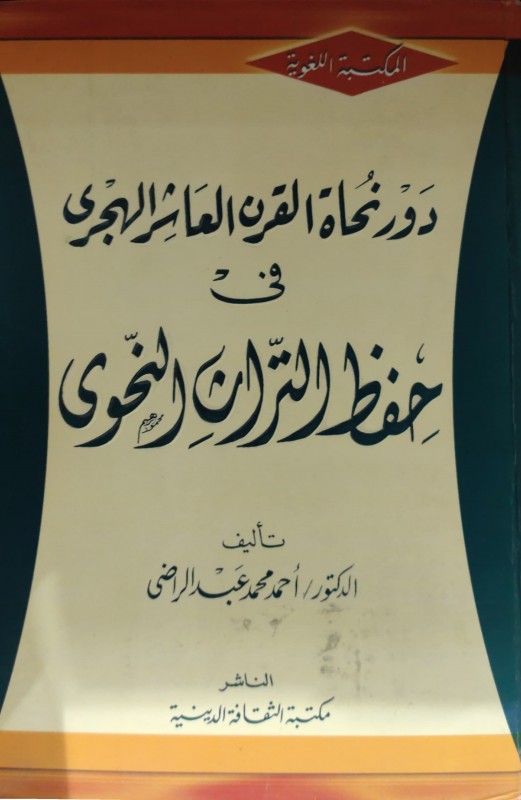 المكتبة اللغوية
دَوْر نُحاة القرن العَاشِر الهِجْرى
فى
حِفظ التّراثِ النّحْوى
تأليف
الدكتور/ أحمد محمد عَبْد الراضى
الناشر
مكتبة الثقافة الدينية